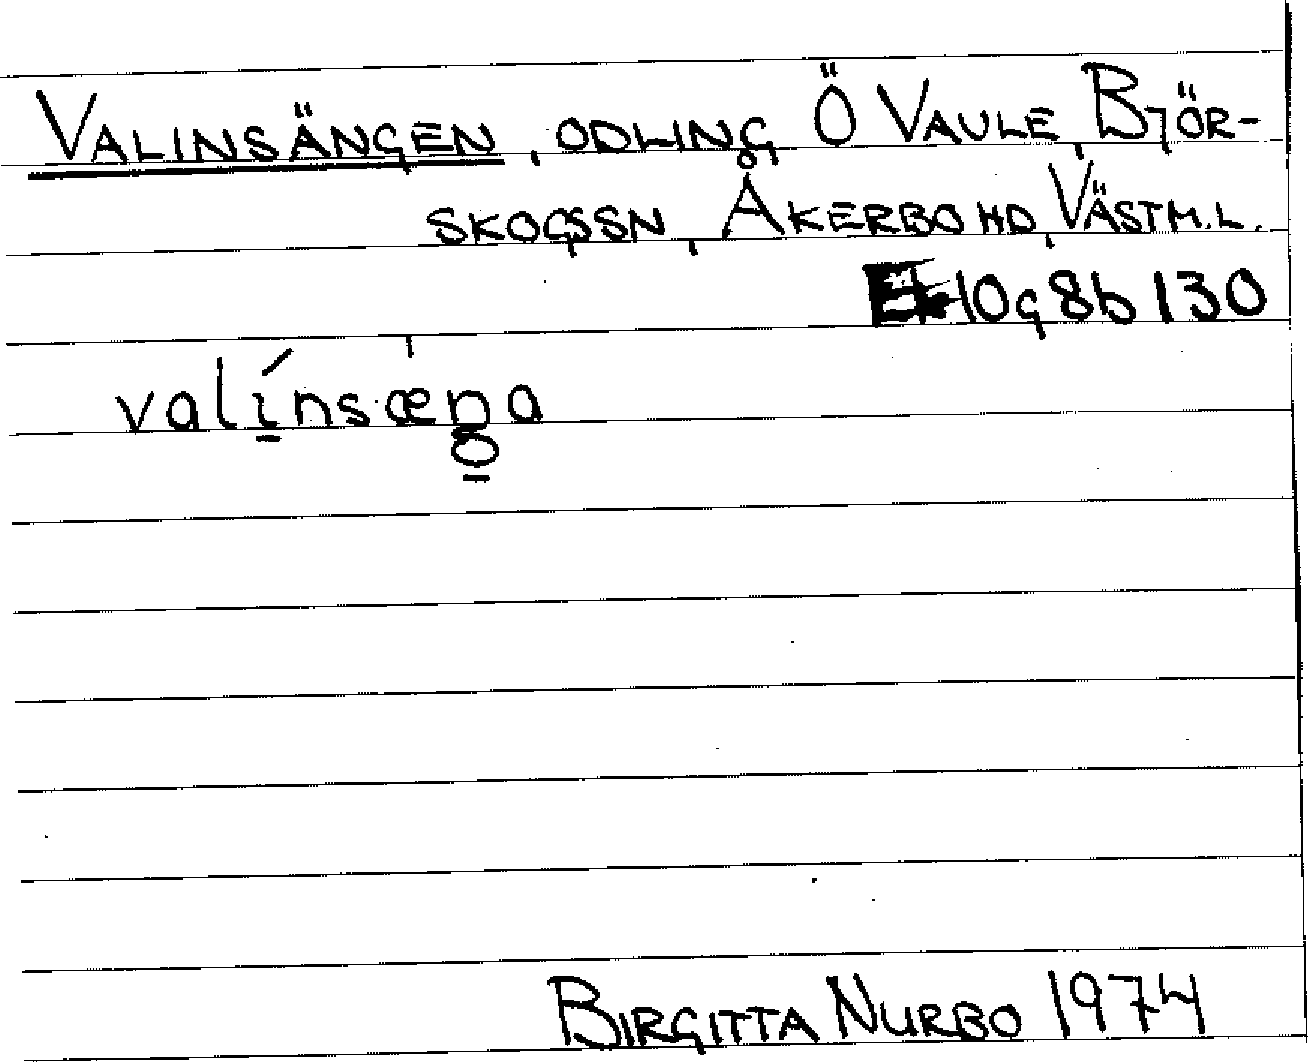 VALINSÄNGEN, ODLING, Ö VAULE, BJÖR-
SKOGSSN, ÅKERBO HD, VÄSTM.L.
10g 8b 130
valínsæŋa
BIRGITTA NURBO 1974